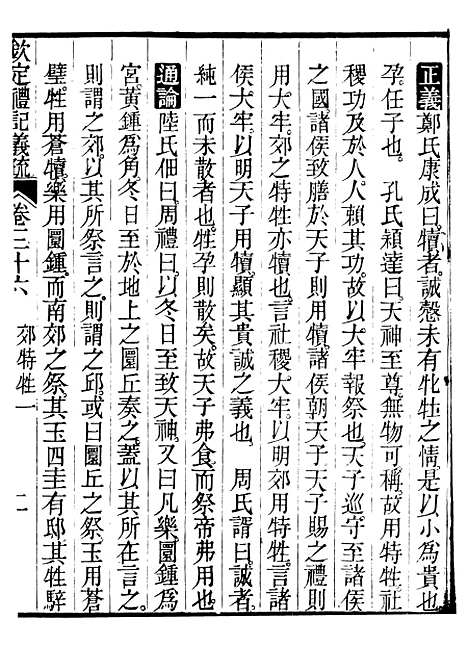 正義鄭氏康成曰犢者誠慤未有牝牡之情是以小為貴也
孕任子也 孔氏穎達曰天神至尊無物可稱故用特牲社
稷功及於人人賴其功故以大牢報祭也天子巡守至諸侯
之國諸侯致膳於天子則用犢諸侯朝天子天子賜之禮則
用大牢郊之特牲亦犢也言社稷大牢以明郊用特牲言諸
侯大牢以明天子用犢顯其貴誠之義也 周氏諝曰誠者
純一而未散者也牲孕則散矣故天子弗食而祭帝弗用也
通論陸氏佃曰周禮曰以冬日至致天神又曰凡樂圜鍾為
宮黃鍾為角冬日至於地上之圜丘奏之蓋以其所在言之
則謂之郊以其所祭言之則謂之邱或曰圜丘之祭玉用蒼
璧牲用蒼犢樂用圜鍾而南郊之祭其玉四圭有邸其牲騂
欽定禮記義疏 卷三十六 郊特牲一 二